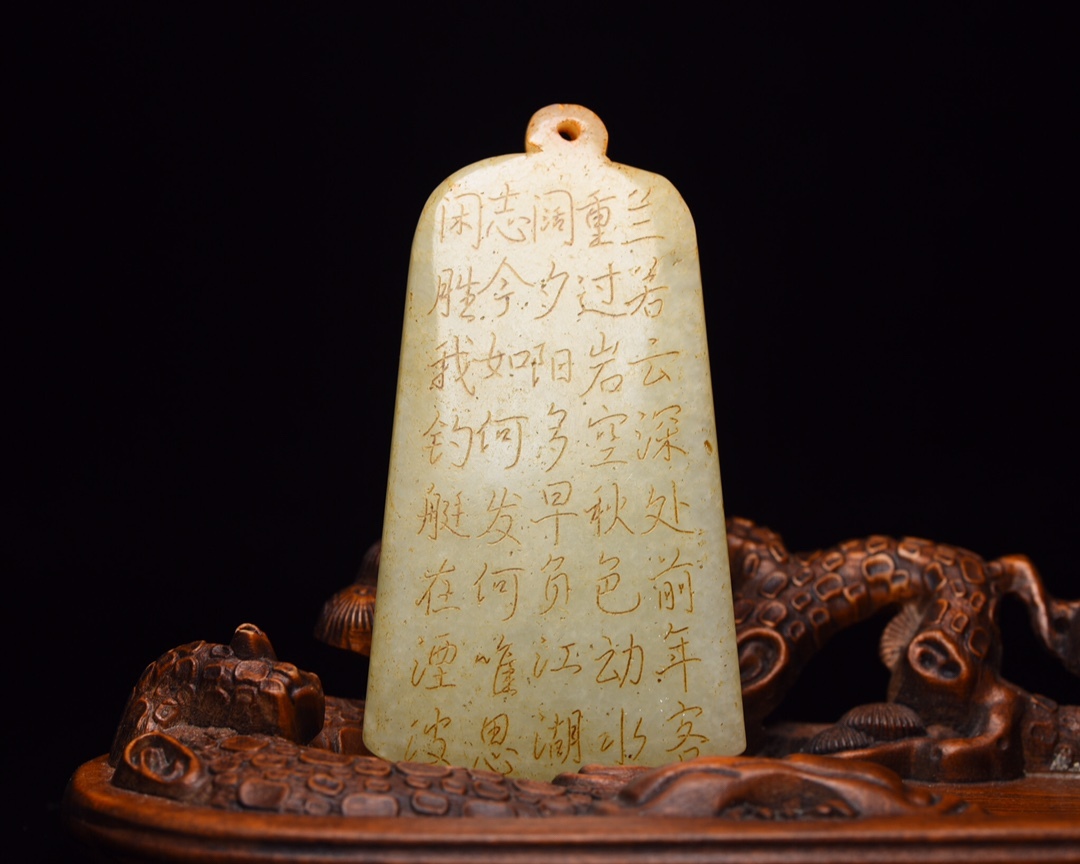 兰若云深处前年客
重过岩空秋色动水
阔夕阳多早负江湖
志今如何发何思
闲胜我钓艇在湮波